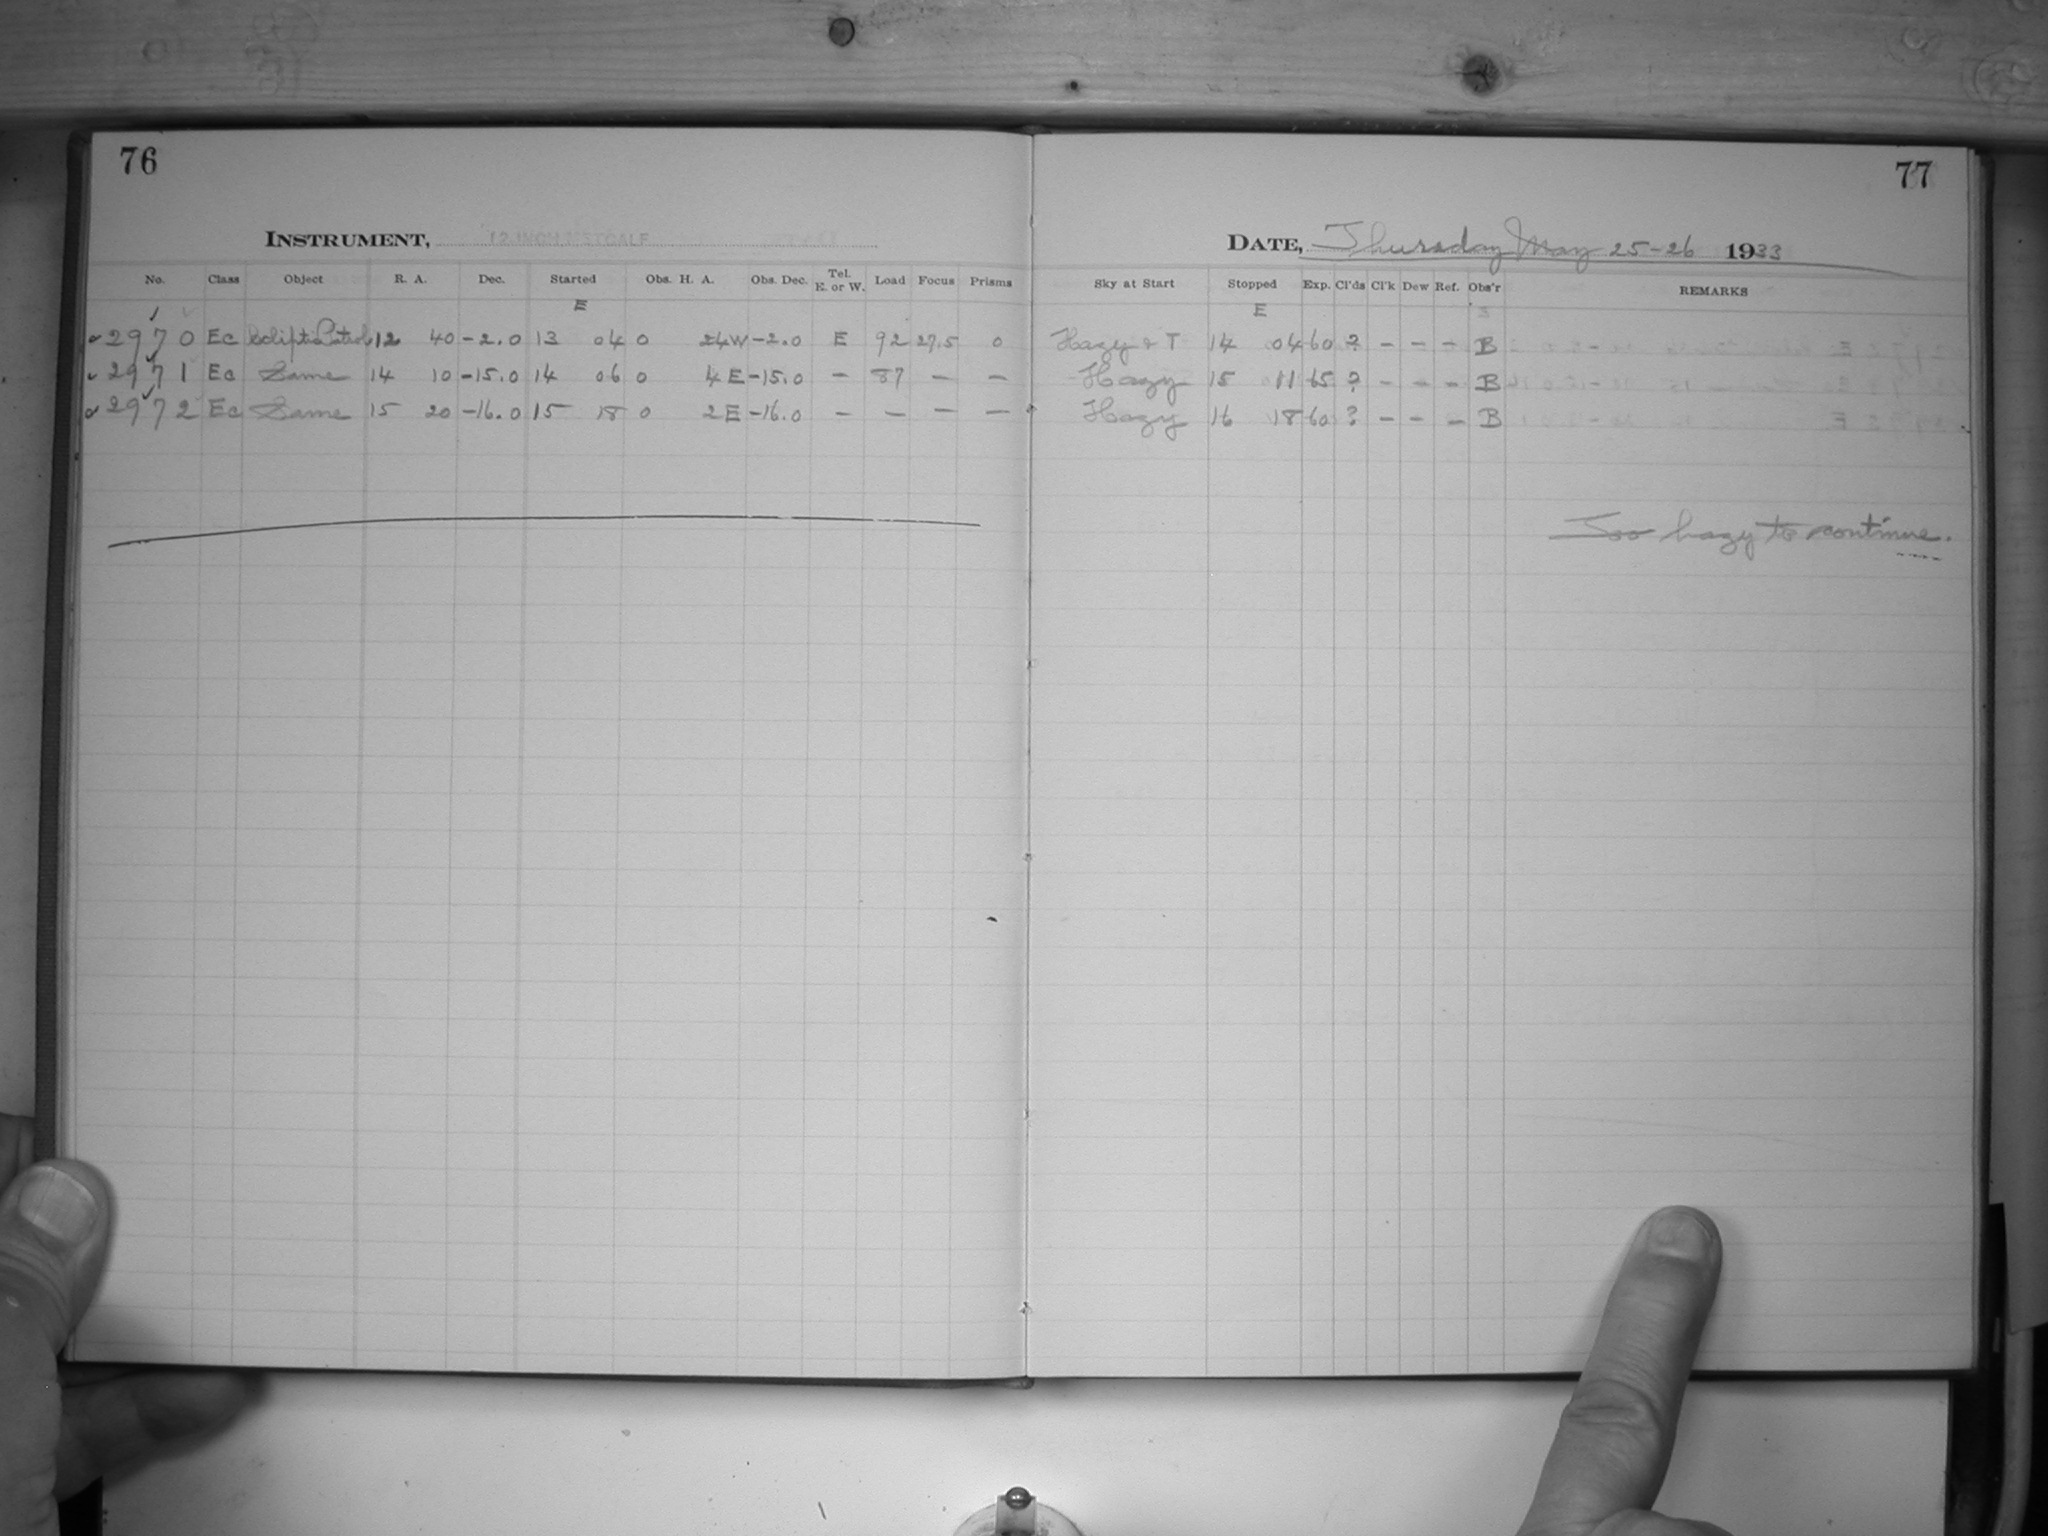 76
INSTRUMENT, 12 INCH METCALF
No. Class Object R. A. Dec. Started Obs. H. A. Obs. Dec. Tel. E. or W. Load Focus Prisms
E
2970 Ec Ecliptic Patrol 12 40 -2.0 13 04 0 24W -2.0 E 92 27.5 0
2971 Ec Same 14 10 -15.0 14 06 0 4 E -15.0 - 87 - -
2972 Ec Same 15 20 -16.0 15 18 0 2E -16.0 - - - -
77
DATE, Thursday May 25-26 1933
Sky at Start Stopped Exp. Cl'ds Cl'k Dew Ref. Obs'r REMARKS
E
Hazy & T 14 04 60 ? - - - B
Hazy 15 11 65 ? - - - B
Hazy 16 18 60 ? - - - B
Too hazy to continue.